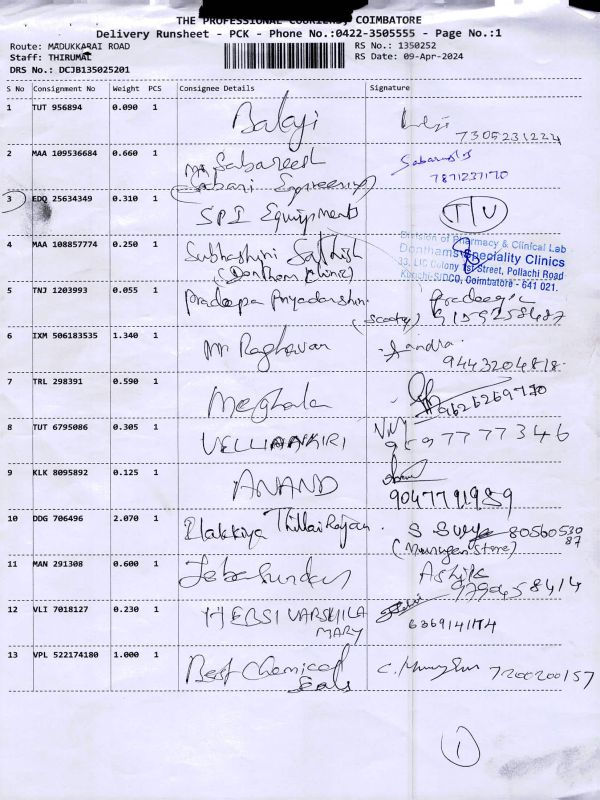 THE PROFESSIONAL COURIERS, COIMBATORE
Delivery Runsheet - PCK - Phone No.:0422-3505555 - Page No.:1
Route: MADUKKARAI ROAD RS No.: 1350252
Staff: THIRUMAL RS Date: 09-Apr-2024
DRS No.: DCJB135025201
S No Consignment No Weight PCS Consignee Details Signature
1 TUT 956894 0.090 1 Balaji
7305231224
2 MAA 109536684 0.660 1 Mr Sabareesh
(Sabari Engineering) 7871237170
3 EDQ 25634349 0.310 1 SPI Equipments T/U
4 MAA 108857774 0.250 1 Subhashini Sathish
(Donthams Clinic)
Division of Pharmacy & Clinical Lab
Donthams Speciality Clinics
33, LIC Colony 1st Street, Pollachi Road
Kurichi-SIDCO, Coimbatore - 641 021.
5 TNJ 1203993 0.055 1 Pradeepa Priyadarshini
(Scooty) 9159258487
6 IXM 506183535 1.340 1 Mr Raghavan
9443204818
7 TRL 298391 0.590 1 Meghala 9626269770
8 TUT 6795086 0.305 1 VELLIANKIRI 9597777346
9 KLK 8095892 0.125 1 ANAND
9047791989
10 DDG 706496 2.070 1 Elakkiya Thillai Rajan S Surya 8056053087
(Murugan Store)
11 MAN 291308 0.600 1 Jebasundar
9790458414
12 VLI 7018127 0.230 1 HEBSI VARSHILA
MARY 6369141174
13 VPL 522174180 1.000 1 Best Chemical
Seals 7200200157
1